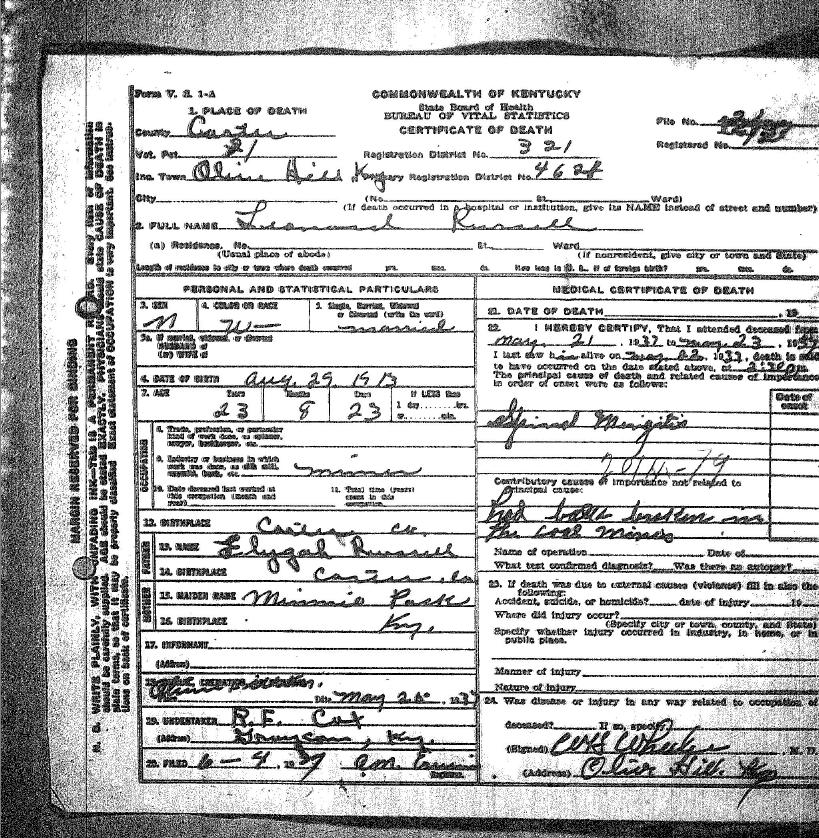 Form V. S. 1-A
COMMONWEALTH OF KENTUCKY
State Board of Health
BUREAU OF VITAL STATISTICS
CERTIFICATE OF DEATH
File No.
Registered No.
1. PLACE OF DEATH
County Carter
Vot. Pct. 21
Registration District No. 321
Inc. Town Olive Hill Ky Primary Registration District No. 4628
City (No. St. Ward)
(If death occurred in a hospital or institution, give its NAME instead of street and number)
2. FULL NAME Leonard Russell
(a) Residence. No. St. Ward
(Usual place of abode) (If nonresident, give city or town and State)
Length of residence in city or town where death occurred yrs. mos. ds. How long in U. S. if of foreign birth? yrs. mos. ds.
PERSONAL AND STATISTICAL PARTICULARS
3. SEX M
4. COLOR OR RACE W
5. Single, Married, Widowed or Divorced (write the word) married
5a. If married, widowed, or divorced
HUSBAND of
(or) WIFE of
6. DATE OF BIRTH Aug. 29 1913
7. AGE Years 23 Months 8 Days 23 If LESS than
1 day hrs.
or min.
OCCUPATION
8. Trade, profession, or particular
kind of work done, as spinner,
sawyer, bookkeeper, etc.
9. Industry or business in which
work was done, as silk mill,
sawmill, bank, etc. miner
10. Date deceased last worked at
this occupation (month and
year)
11. Total time (years)
spent in this
occupation
12. BIRTHPLACE Carter Co.
FATHER
13. NAME Elygah Russell
14. BIRTHPLACE Carter Co
MOTHER
15. MAIDEN NAME Minnie
16. BIRTHPLACE Ky.
17. INFORMANT
(Address)
Date May 1937
19. UNDERTAKER R. F. Cox
(Address) Grayson, Ky.
20. FILED 6-4 1937
Registrar.
MEDICAL CERTIFICATE OF DEATH
21. DATE OF DEATH 19
22. I HEREBY CERTIFY, That I attended deceased from
May 21 1937 to May 23 1937
I last saw him alive on May 1937, death is said
to have occurred on the date stated above, at 2:30 pm
The principal cause of death and related causes of importance
in order of onset were as follows:
Date of onset
Spinal Mengitis
Contributory causes of importance not related to
principal cause:
had back broken in
the coal mines
Name of operation Date of
What test confirmed diagnosis? Was there an autopsy?
23. If death was due to external causes (violence) fill in also the
following:
Accident, suicide, or homicide? date of injury 19
Where did injury occur?
(Specify city or town, county, and State)
Specify whether injury occurred in industry, in home, or in
public place.
Manner of injury
Nature of injury
24. Was disease or injury in any way related to occupation of
deceased? If so, specify
(Signed) M. D.
(Address) Olive Hill Ky
MARGIN RESERVED FOR BINDING